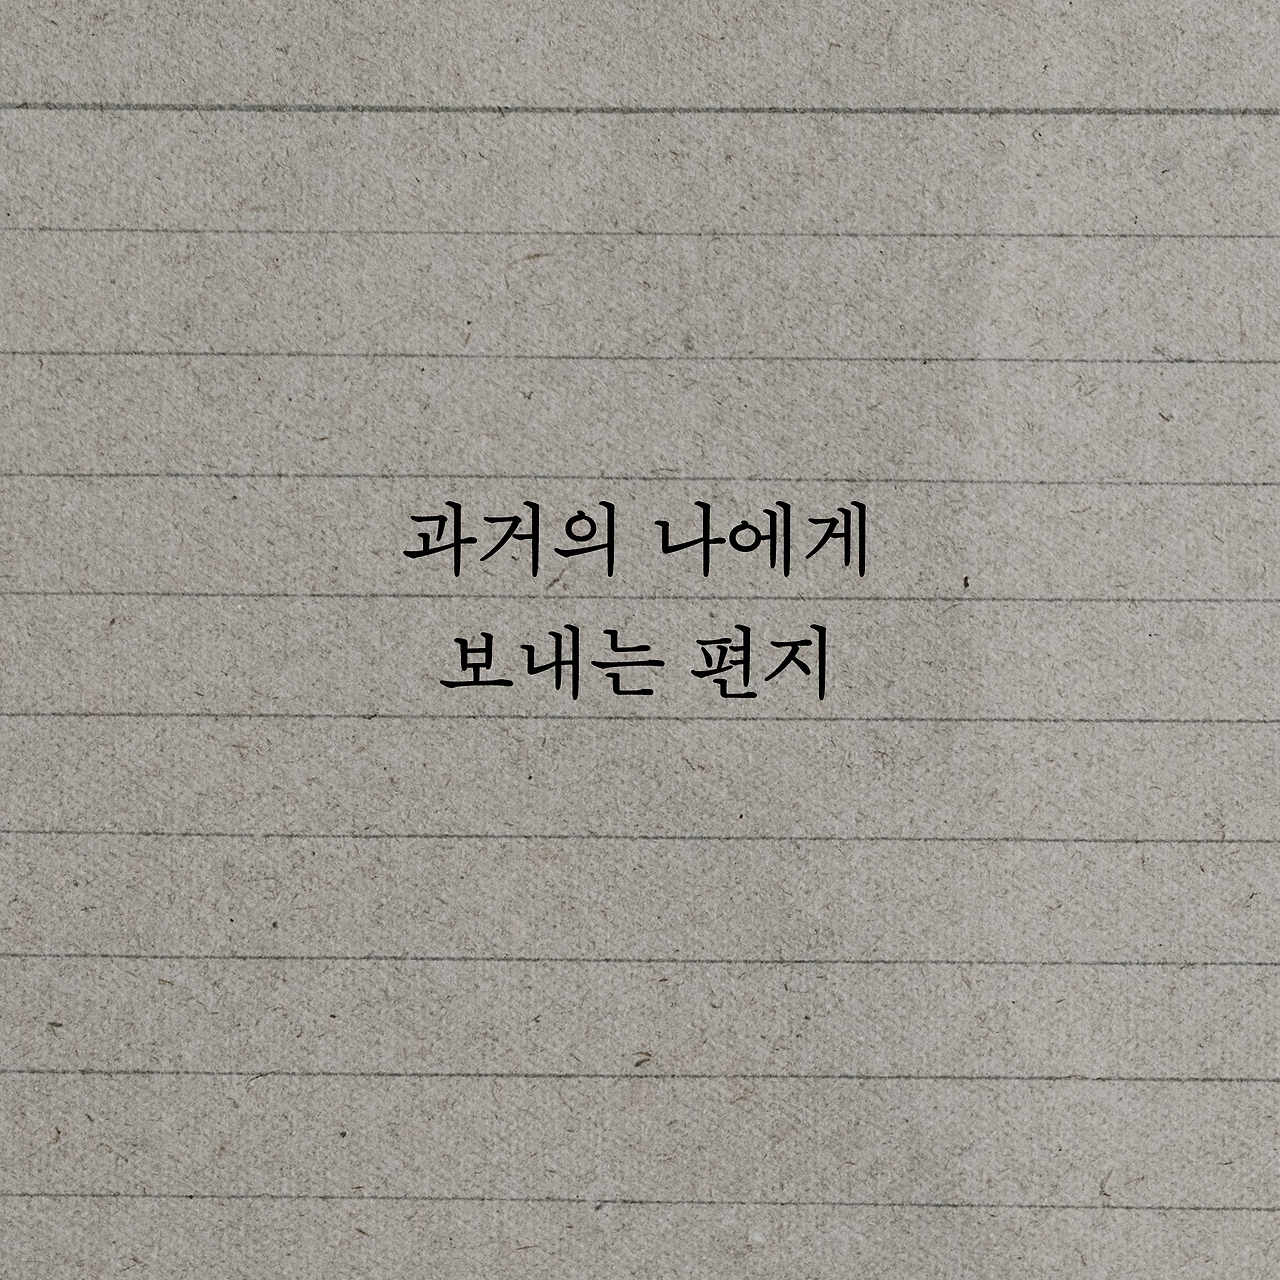 과거의 나에게
보내는 편지